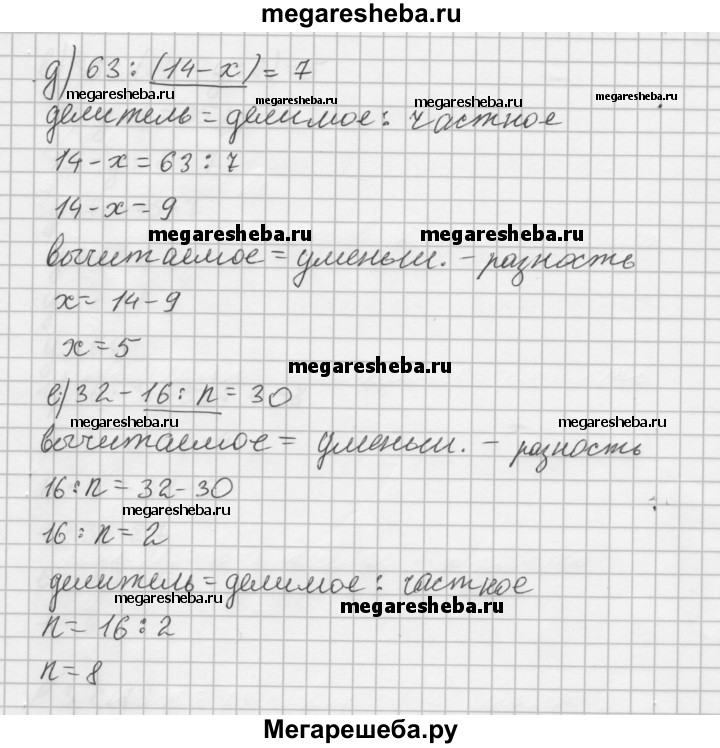 megaresheba.ru
д) 63 : (14 - x) = 7
megaresheba.ru megaresheba.ru megaresheba.ru megaresheba.ru
делитель = делимое : частное
14 - x = 63 : 7
14 - x = 9
megaresheba.ru megaresheba.ru
вычитаемое = уменьш. - разность
x = 14 - 9
x = 5
megaresheba.ru
е) 32 - 16 : n = 30
megaresheba.ru megaresheba.ru
вычитаемое = уменьш. - разность
16 : n = 32 - 30
megaresheba.ru
16 : n = 2
делитель = делимое : частное
megaresheba.ru megaresheba.ru
n = 16 : 2
n = 8
Мегарешеба.ру